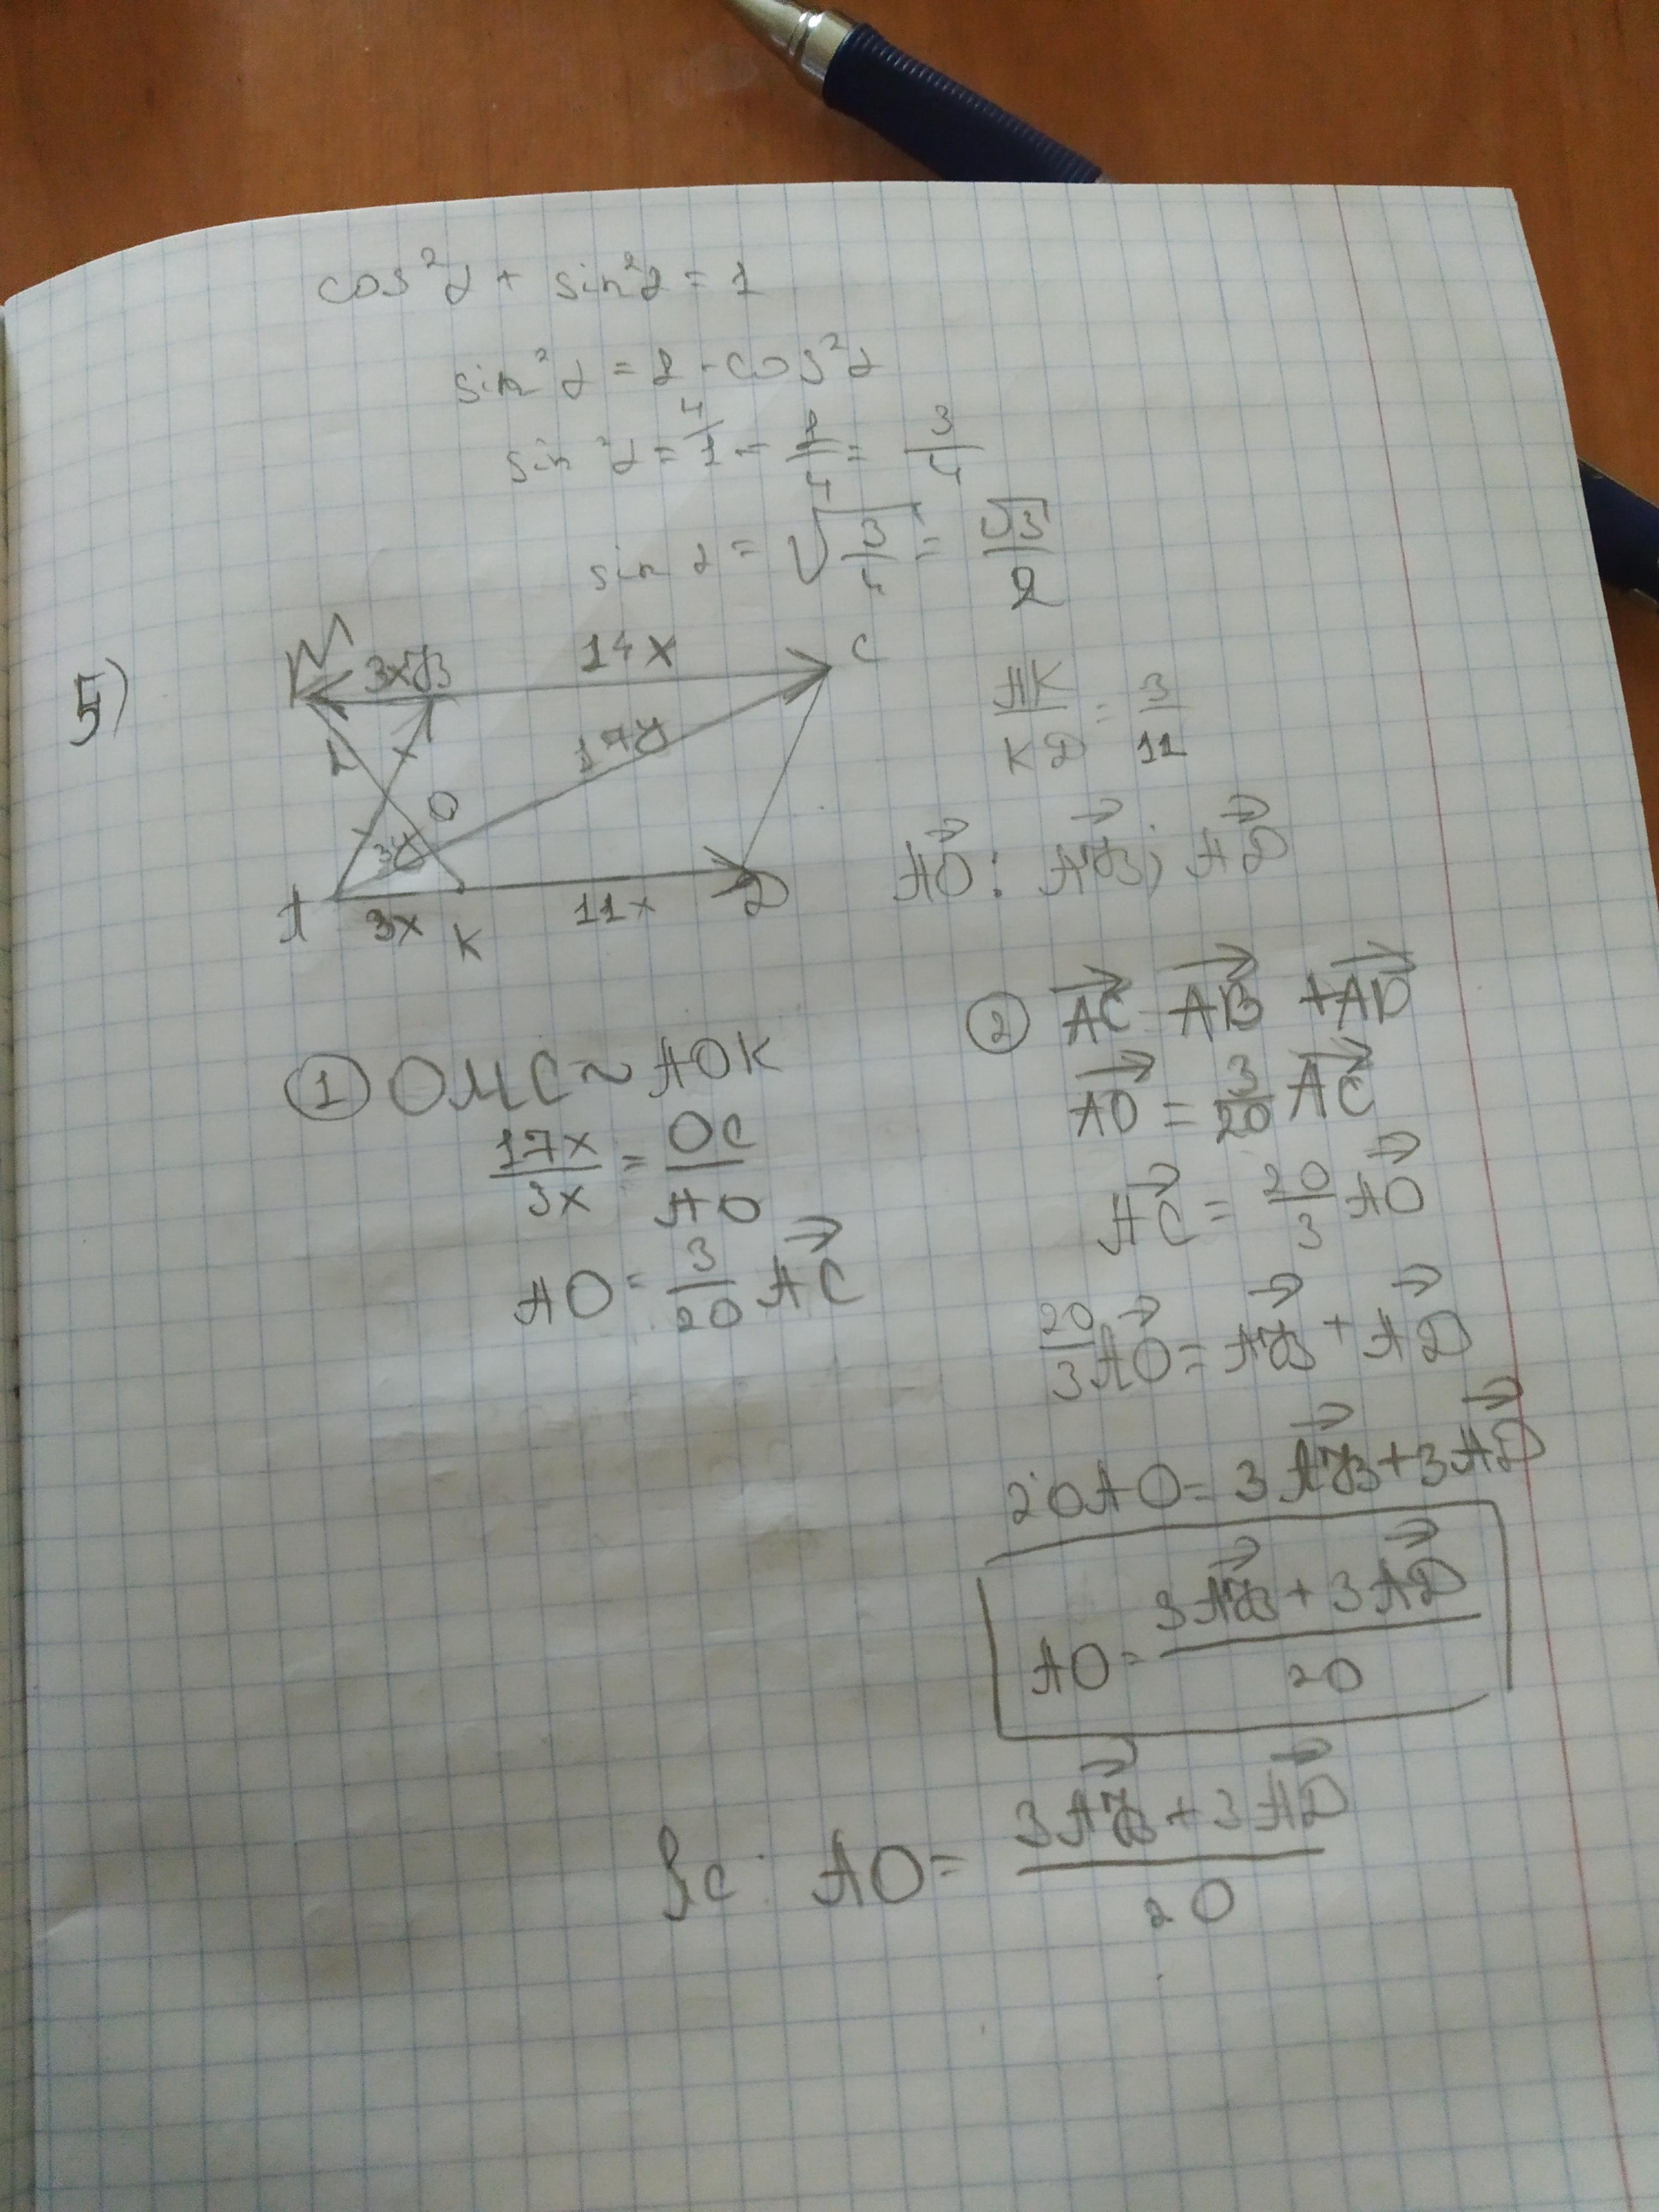 cos²α + sin²α = 1
sin²α = 1 - cos²α
sin²α = 4/1 - 1/4 = 3/4
sin α = √(3/4) = √3/2
5)
M 3x B 14x C
17y
O
3y
A 3x K 11x D
AK/KD = 3/11
AO→ : AB→ ; AD→
① OMC ~ AOK
17x/3x = OC/AO
AO = 3/20 AC→
② AC→ AB→ + AD→
AO→ = 3/20 AC→
AC→ = 20/3 AO→
20/3 AO→ = AB→ + AD→
20AO = 3AB→ + 3AD→
AO = (3AB→ + 3AD→)/20
AO = (3AB→ + 3AD→)/20